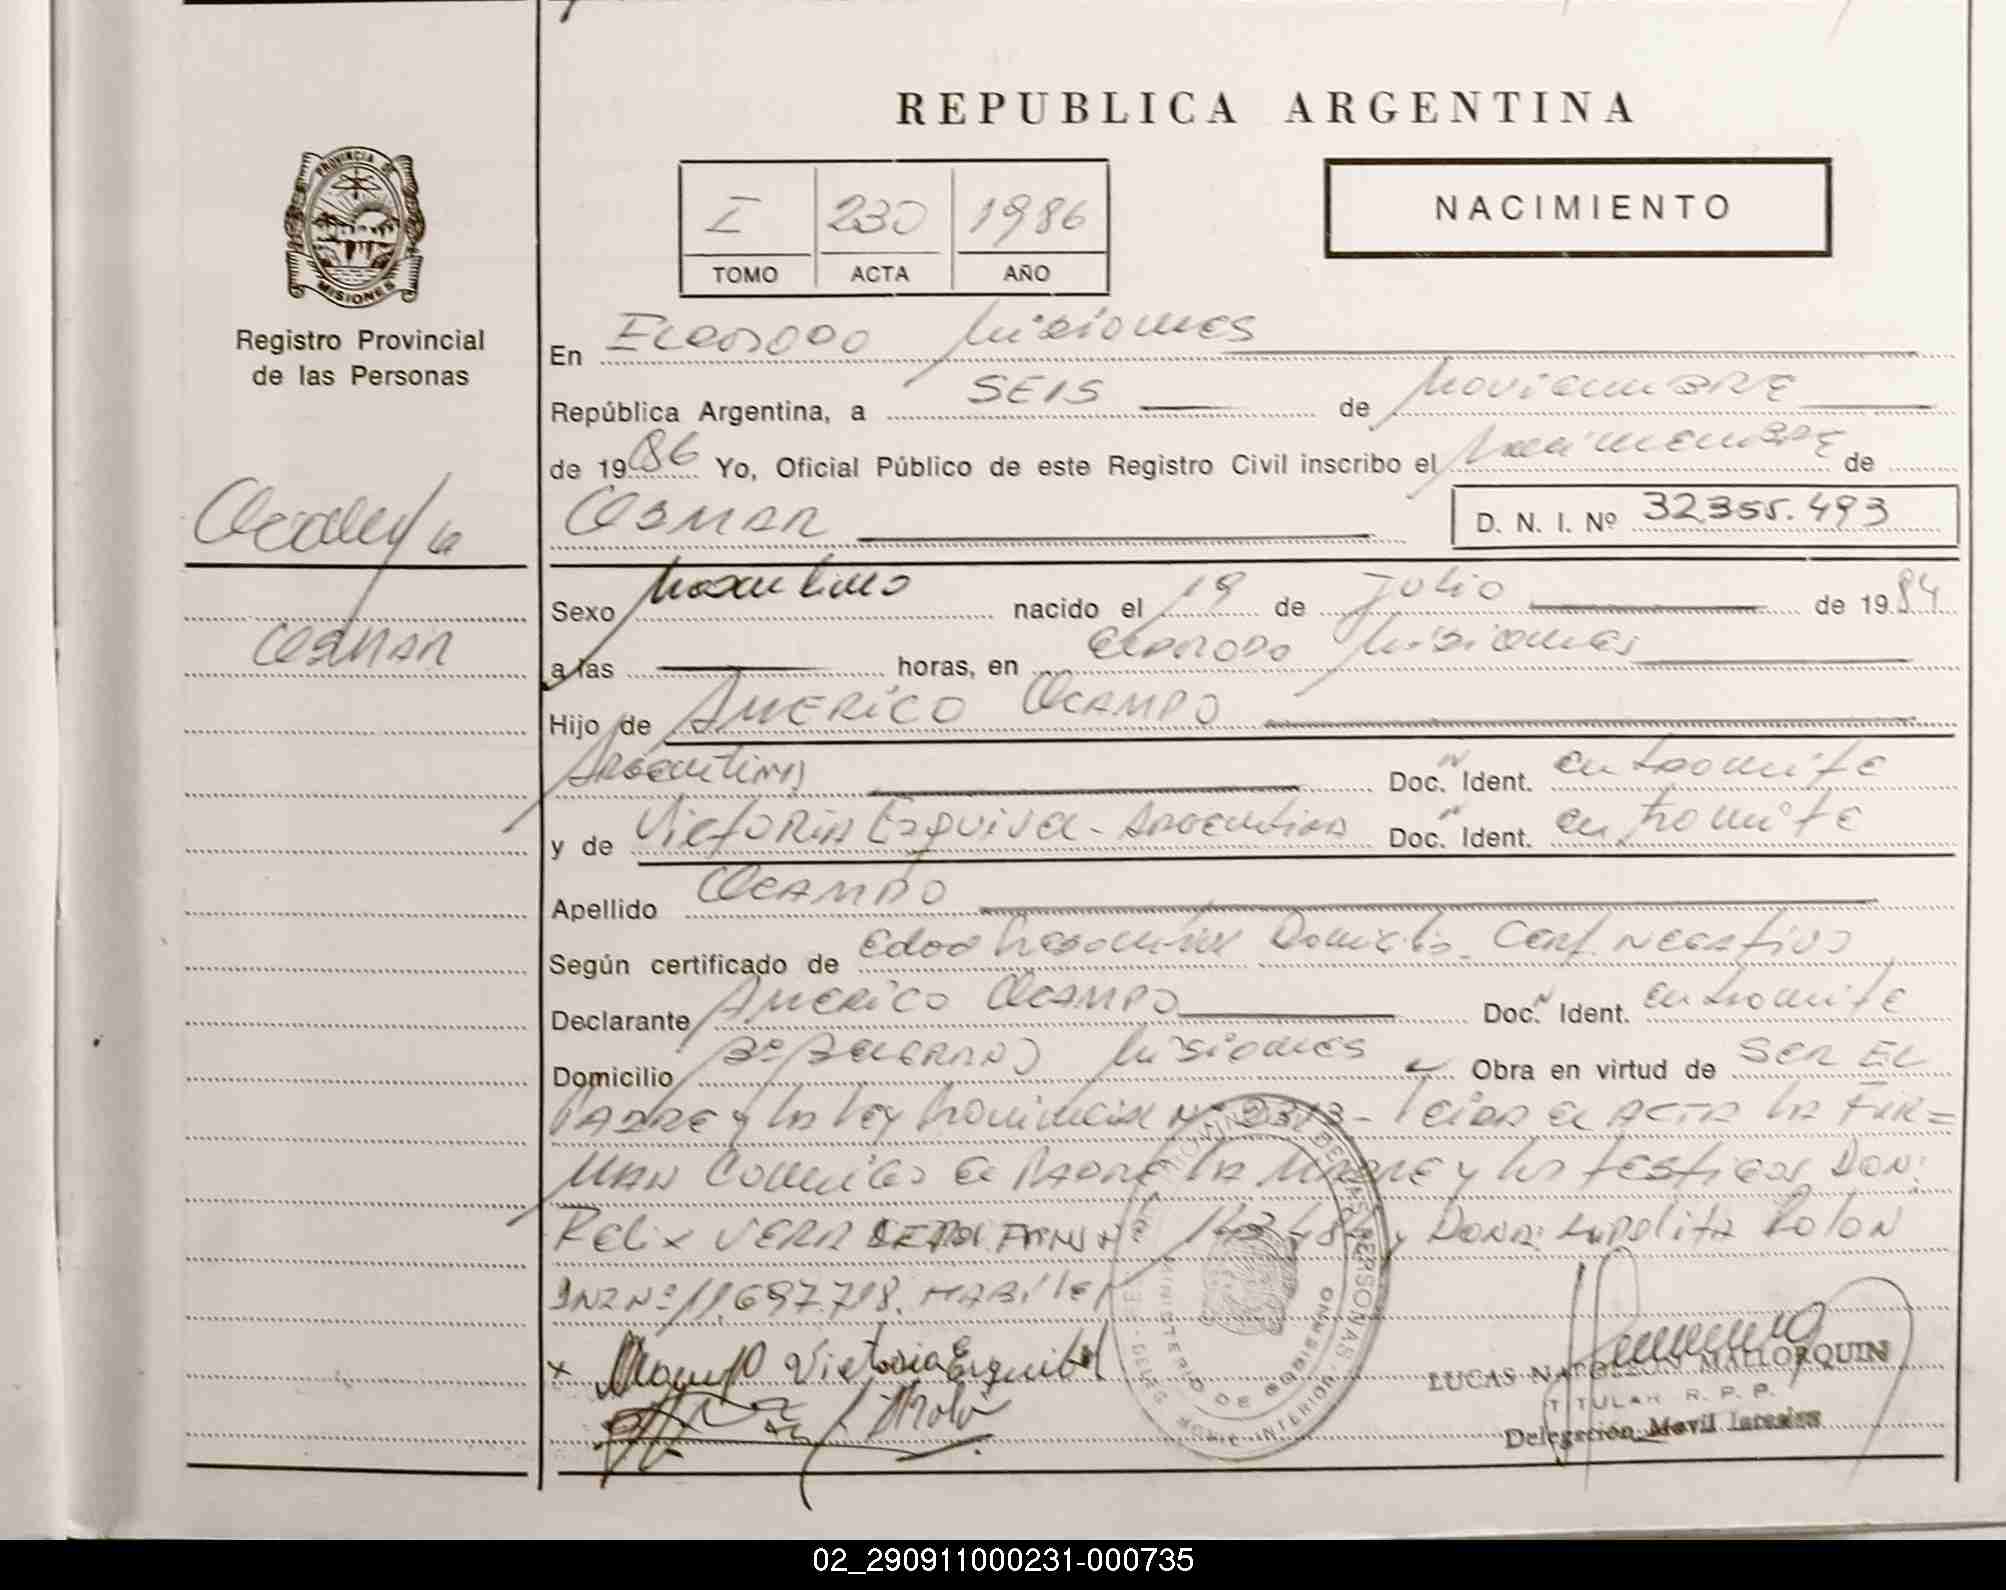 REPUBLICA ARGENTINA
PROVINCIA DE
MISIONES
Registro Provincial
de las Personas
I 230 1986
TOMO ACTA AÑO
NACIMIENTO
En Eldorado Misiones
República Argentina, a SEIS de Noviembre
de 1986 Yo, Oficial Público de este Registro Civil inscribo el Nacimiento de
OSMAR
D. N. I. Nº 32.355.493
OSMAR
Sexo Masculino nacido el 19 de Julio de 1984
a las horas, en Eldorado Misiones
Hijo de AMERICO OCAMPO
Argentino Doc. Ident. en tramite
y de Victoria Esquivel - Argentina Doc. Ident. en tramite
Apellido OCAMPO
Según certificado de Edad Domicilio Cert. Negativo
Declarante AMERICO OCAMPO Doc. Ident. en tramite
Domicilio Misiones Obra en virtud de SER EL
PADRE y la ley Provincial Nº - leida el ACTA la FIR=
MAN Conmigo el PADRE la MADRE y los testigos DON:
Felix VERA y DOÑA: Rolon
Nº 11.697.718.
Victoria Esquibel
LUCAS NAPOLEON MALLORQUIN
TITULAR R. P. P.
Delegación Movil
MINISTERIO DE GOBIERNO
02_290911000231-000735